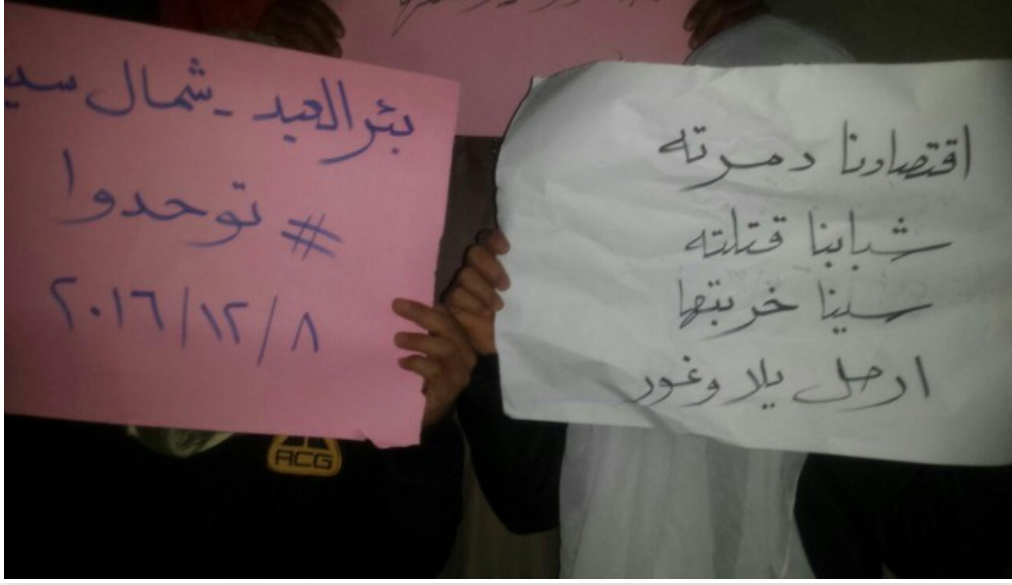 اقتصادنا دمرته
شبابنا قتلته
سينا خربتها
ارحل يلا وغور
بئر العبد - شمال سيـ
# توحدوا
٢٠١٦/١٢/٨
ACG